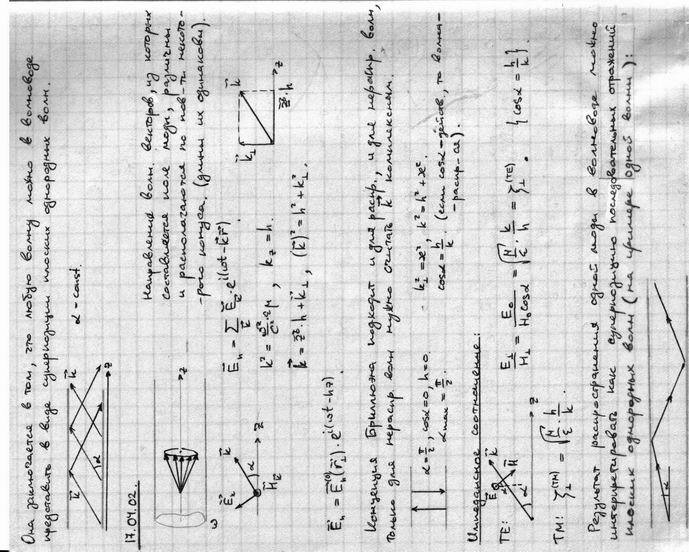 Она заключается в том, что любую волну можно в волноводе
представить в виде суперпозиции плоских однородных волн.
k k α - const.
α z
17.04.02.
Направления волн. векторов, из которых
составляется поле моды, различны
и располагаются по пов-ти некото-
рого конуса. (длины их одинаковы).
z
ω
E_k k α z H_k
E_n = Σ_k E_k · e^{i(ωt - kr)}
k² = ω²/c² εμ, k_z = h.
k = z⁰·h + k_⊥, (k)² = h² + k_⊥².
k_⊥ k z z⁰·h
E_n = E_n⁽⁰⁾(r_⊥) · e^{i(ωt - hz)}
Концепция Бриллюэна подходит и для распр., и для нераспр. волн,
только для нераспр. волн нужно считать k комплексным.
α = π/2, cosα = 0, h = 0.
α max = π/2.
k_⊥² = æ², k² = h² + æ².
cosα = h/k, (если cosα - действ., то волна -
- распр-ся).
Импедансное соотношение:
TE: E k H α z
E_⊥/H_⊥ = E₀/(H₀ cosα) = √(μ/ε) · k/h = ζ_⊥^(TE). {cosα = h/k}.
TM: ζ_⊥^(TM) = √(μ/ε) h/k.
Результат распространения одной моды в волноводе можно
интерпретировать как суперпозицию последовательных отражений
плоских однородных волн (на примере одной волны):
α